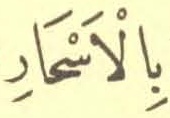 بِالْاَسْحَارِ